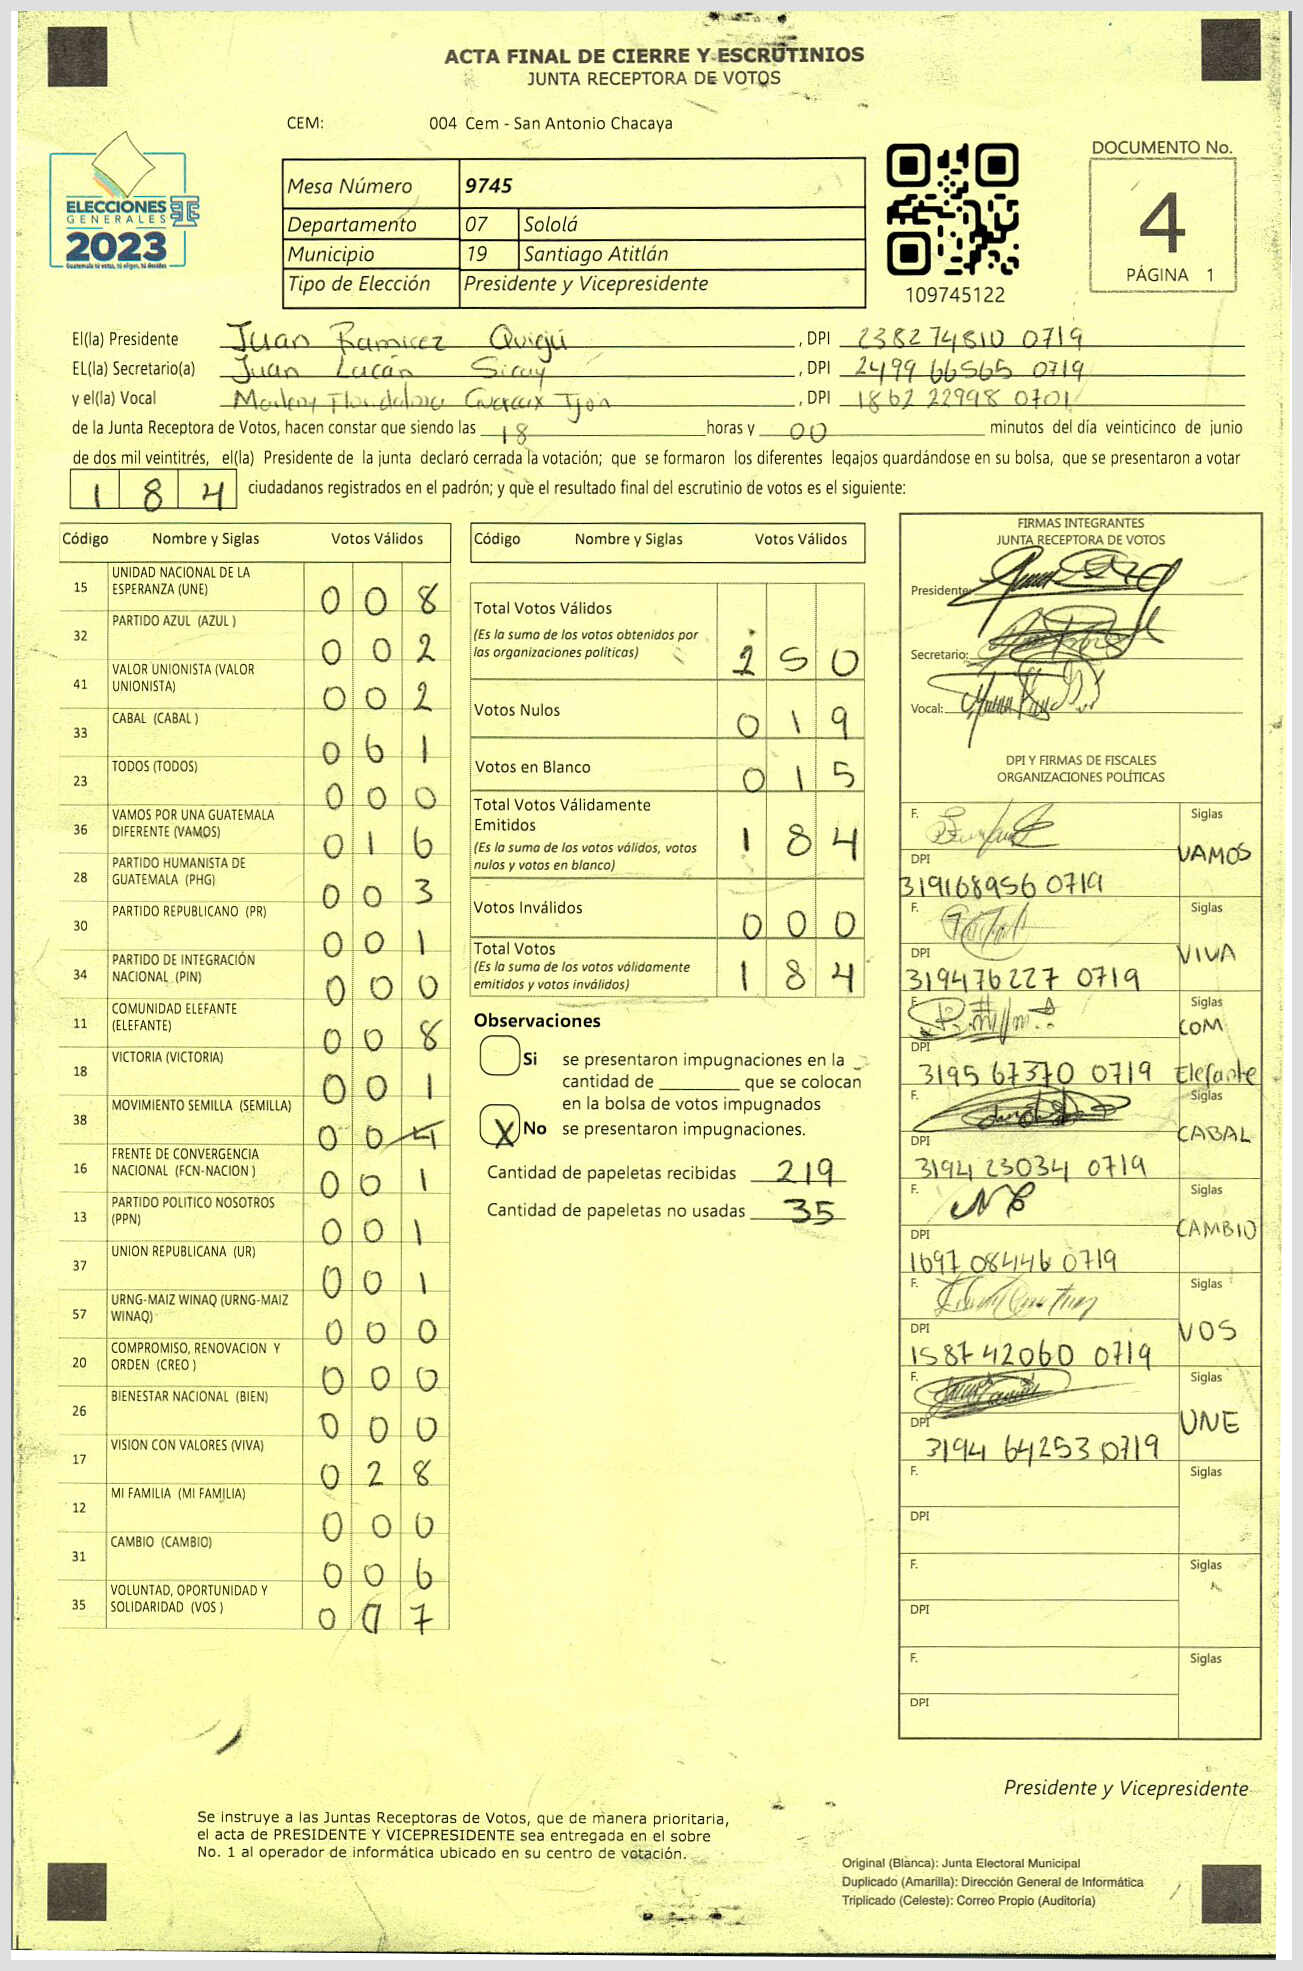 ACTA FINAL DE CIERRE Y ESCRUTINIOS
JUNTA RECEPTORA DE VOTOS
CEM: 004 Cem - San Antonio Chacaya
ELECCIONES
GENERALES
2023
Guatemala tú votas, tú eliges, tú decides
Mesa Número 9745
Departamento 07 Sololá
Municipio 19 Santiago Atitlán
Tipo de Elección Presidente y Vicepresidente
109745122
DOCUMENTO No.
4
PÁGINA 1
El(la) Presidente Juan Ramirez Quiejú, DPI 238274810 0719
EL(la) Secretario(a) Juan Lacán Sicay, DPI 2499 66565 0719
y el(la) Vocal, DPI 1862 22998 0701
de la Junta Receptora de Votos, hacen constar que siendo las 18 horas y 00 minutos del día veinticinco de junio
de dos mil veintitrés, el(la) Presidente de la junta declaró cerrada la votación; que se formaron los diferentes legajos guardándose en su bolsa, que se presentaron a votar
184 ciudadanos registrados en el padrón; y que el resultado final del escrutinio de votos es el siguiente:
Código Nombre y Siglas Votos Válidos
15 UNIDAD NACIONAL DE LA ESPERANZA (UNE) 008
32 PARTIDO AZUL (AZUL ) 002
41 VALOR UNIONISTA (VALOR UNIONISTA) 002
33 CABAL (CABAL ) 061
23 TODOS (TODOS) 000
36 VAMOS POR UNA GUATEMALA DIFERENTE (VAMOS) 016
28 PARTIDO HUMANISTA DE GUATEMALA (PHG) 003
30 PARTIDO REPUBLICANO (PR) 001
34 PARTIDO DE INTEGRACIÓN NACIONAL (PIN) 000
11 COMUNIDAD ELEFANTE (ELEFANTE) 008
18 VICTORIA (VICTORIA) 001
38 MOVIMIENTO SEMILLA (SEMILLA) 004
16 FRENTE DE CONVERGENCIA NACIONAL (FCN-NACION ) 001
13 PARTIDO POLITICO NOSOTROS (PPN) 001
37 UNION REPUBLICANA (UR) 001
57 URNG-MAIZ WINAQ (URNG-MAIZ WINAQ) 000
20 COMPROMISO, RENOVACION Y ORDEN (CREO ) 000
26 BIENESTAR NACIONAL (BIEN) 000
17 VISION CON VALORES (VIVA) 028
12 MI FAMILIA (MI FAMILIA) 000
31 CAMBIO (CAMBIO) 006
35 VOLUNTAD, OPORTUNIDAD Y SOLIDARIDAD (VOS ) 007
Código Nombre y Siglas Votos Válidos
Total Votos Válidos
(Es la suma de los votos obtenidos por
las organizaciones políticas) 150
Votos Nulos 019
Votos en Blanco 015
Total Votos Válidamente
Emitidos
(Es la suma de los votos válidos, votos
nulos y votos en blanco) 184
Votos Inválidos 000
Total Votos
(Es la suma de los votos válidamente
emitidos y votos inválidos) 184
Observaciones
Si se presentaron impugnaciones en la
cantidad de ________ que se colocan
en la bolsa de votos impugnados
X No se presentaron impugnaciones.
Cantidad de papeletas recibidas 219
Cantidad de papeletas no usadas 35
FIRMAS INTEGRANTES
JUNTA RECEPTORA DE VOTOS
Presidente:
Secretario:
Vocal:
DPI Y FIRMAS DE FISCALES
ORGANIZACIONES POLÍTICAS
F. Siglas
VAMOS
DPI
319168956 0719
F. Siglas
VIVA
DPI
319476227 0719
F. Siglas
COM
Elefante
DPI
3195 67370 0719
F. Siglas
CABAL
DPI
3194 23034 0719
F. Siglas
CAMBIO
DPI
1697 08446 0719
F. Siglas
VOS
DPI
1587 42060 0719
F. Siglas
UNE
DPI
3194 64253 0719
F. Siglas
DPI
F. Siglas
DPI
F. Siglas
DPI
Presidente y Vicepresidente
Se instruye a las Juntas Receptoras de Votos, que de manera prioritaria,
el acta de PRESIDENTE Y VICEPRESIDENTE sea entregada en el sobre
No. 1 al operador de informática ubicado en su centro de votación.
Original (Blanca): Junta Electoral Municipal
Duplicado (Amarilla): Dirección General de Informática
Triplicado (Celeste): Correo Propio (Auditoría)